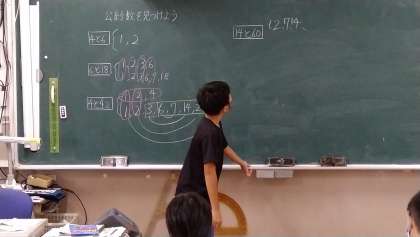 公約数を見つけよう
4と6 1,2
6と18 1,2,3,6
1,2,3,6,9,18
1,2,4
1,2,3,6,7,14,2
14と60 1,2,7,14、